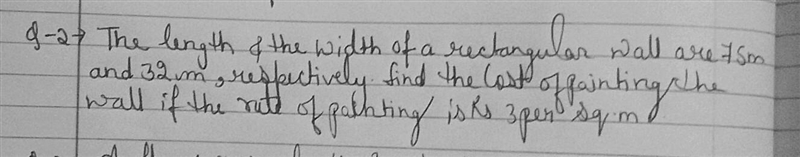 Q-2→ The length & the width of a rectangular wall are 75m
and 32 m, respectively. find the Cost of painting the
wall if the rate of pathting is Rs 3 per sq.m